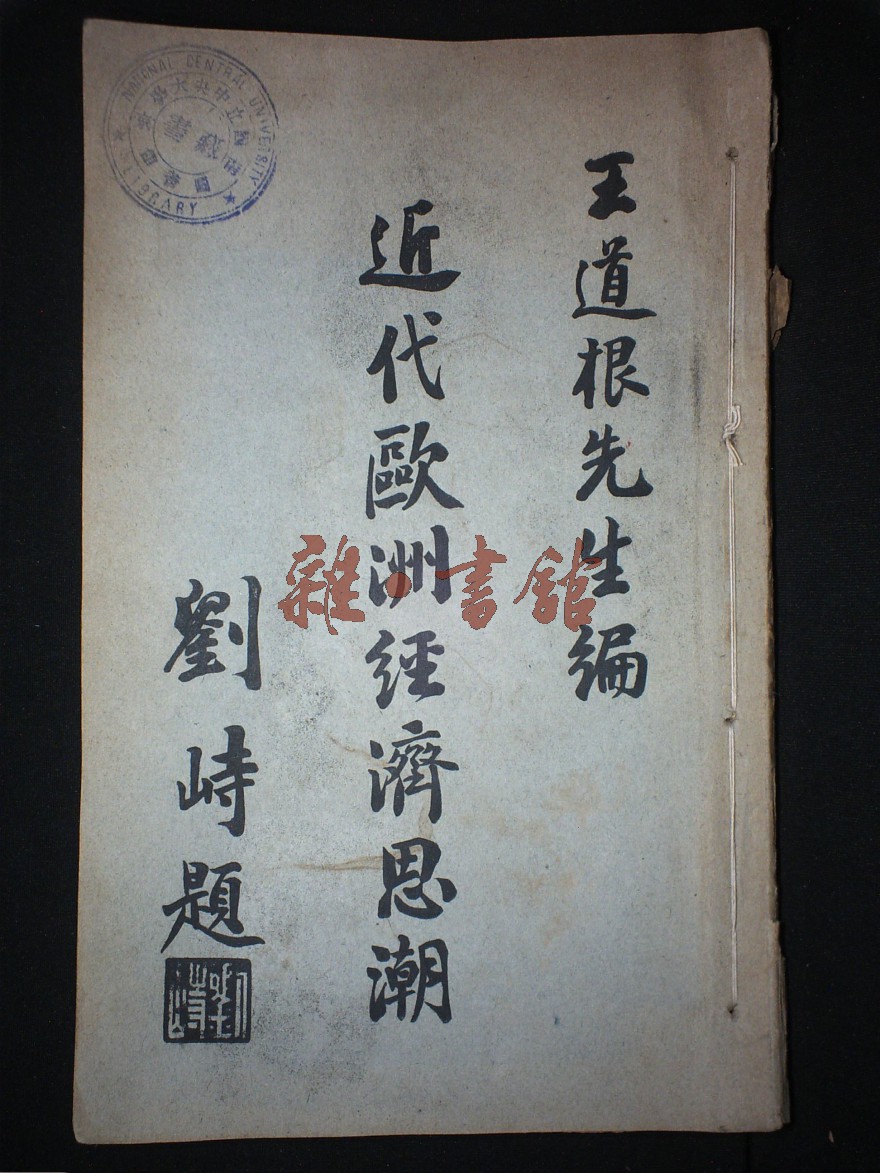 王道根先生編
近代歐洲經濟思潮
劉峙題
劉峙
NATIONAL CENTRAL UNIVERSITY
LIBRARY
國立中央大學圖書館
雜·書館